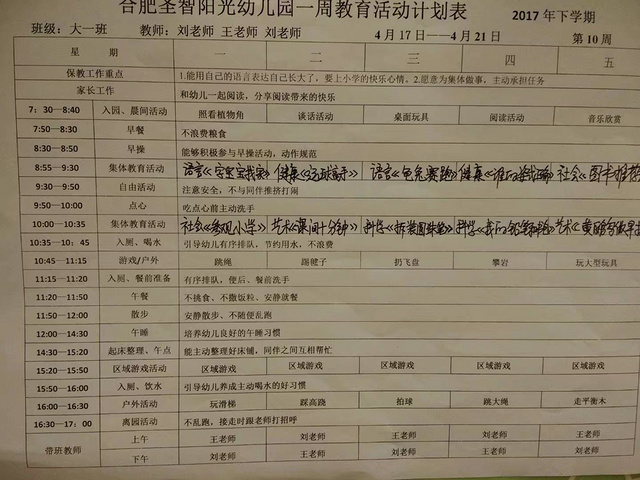 合肥圣智阳光幼儿园一周教育活动计划表 2017 年下学期
班级：大一班 教师：刘老师 王老师 刘老师 4 月 17 日—4 月 21 日 第 10 周
星 期 一 二 三 四 五
保教工作重点 1.能用自己的语言表达自己长大了，要上小学的快乐心情。2.愿意为集体做事，主动承担任务
家长工作 和幼儿一起阅读，分享阅读带来的快乐
7：30—8:40 入园、晨间活动 照看植物角 谈话活动 桌面玩具 阅读活动 音乐欣赏
7:50—8:30 早餐 不浪费粮食
8:30—8:50 早操 能够积极参与早操活动，动作规范
8:55—9:30 集体教育活动 语言 健康 语言《龟兔赛跑》 健康 社会
9:30—9:50 自由活动 注意安全，不与同伴推挤打闹
9:50—10:00 点心 吃点心前主动洗手
10:00—10:35 集体教育活动 社会《参观小学》 艺术《课间十分钟》 科学 科学 艺术
10:35—10：45 入厕、喝水 引导幼儿有序排队，节约用水，不浪费
10:45—11:15 游戏/户外 跳绳 踢毽子 扔飞盘 攀岩 玩大型玩具
11:15—11:20 入厕、餐前准备 有序排队，便后、餐前洗手
11:20—11:50 午餐 不挑食、不撒饭粒、安静就餐
11:50—12:00 散步 安静散步、不随便乱跑
12:00—14:30 午睡 培养幼儿良好的午睡习惯
14:30—15:20 起床整理、午点 能主动整理好床铺，同伴之间互相帮忙
15:20—15:50 区域活动 区域游戏 区域游戏 区域游戏 区域游戏 区域游戏
15:50—16:00 入厕、饮水 引导幼儿养成主动喝水的好习惯
16:00—16:30 户外活动 玩滑梯 踩高跷 拍球 跳大绳 走平衡木
16:30—17：00 离园活动 不乱跑，接走时跟老师打招呼
带班教师 上午 王老师 刘老师 王老师 刘老师 王老师
下午 刘老师 王老师 刘老师 王老师 刘老师